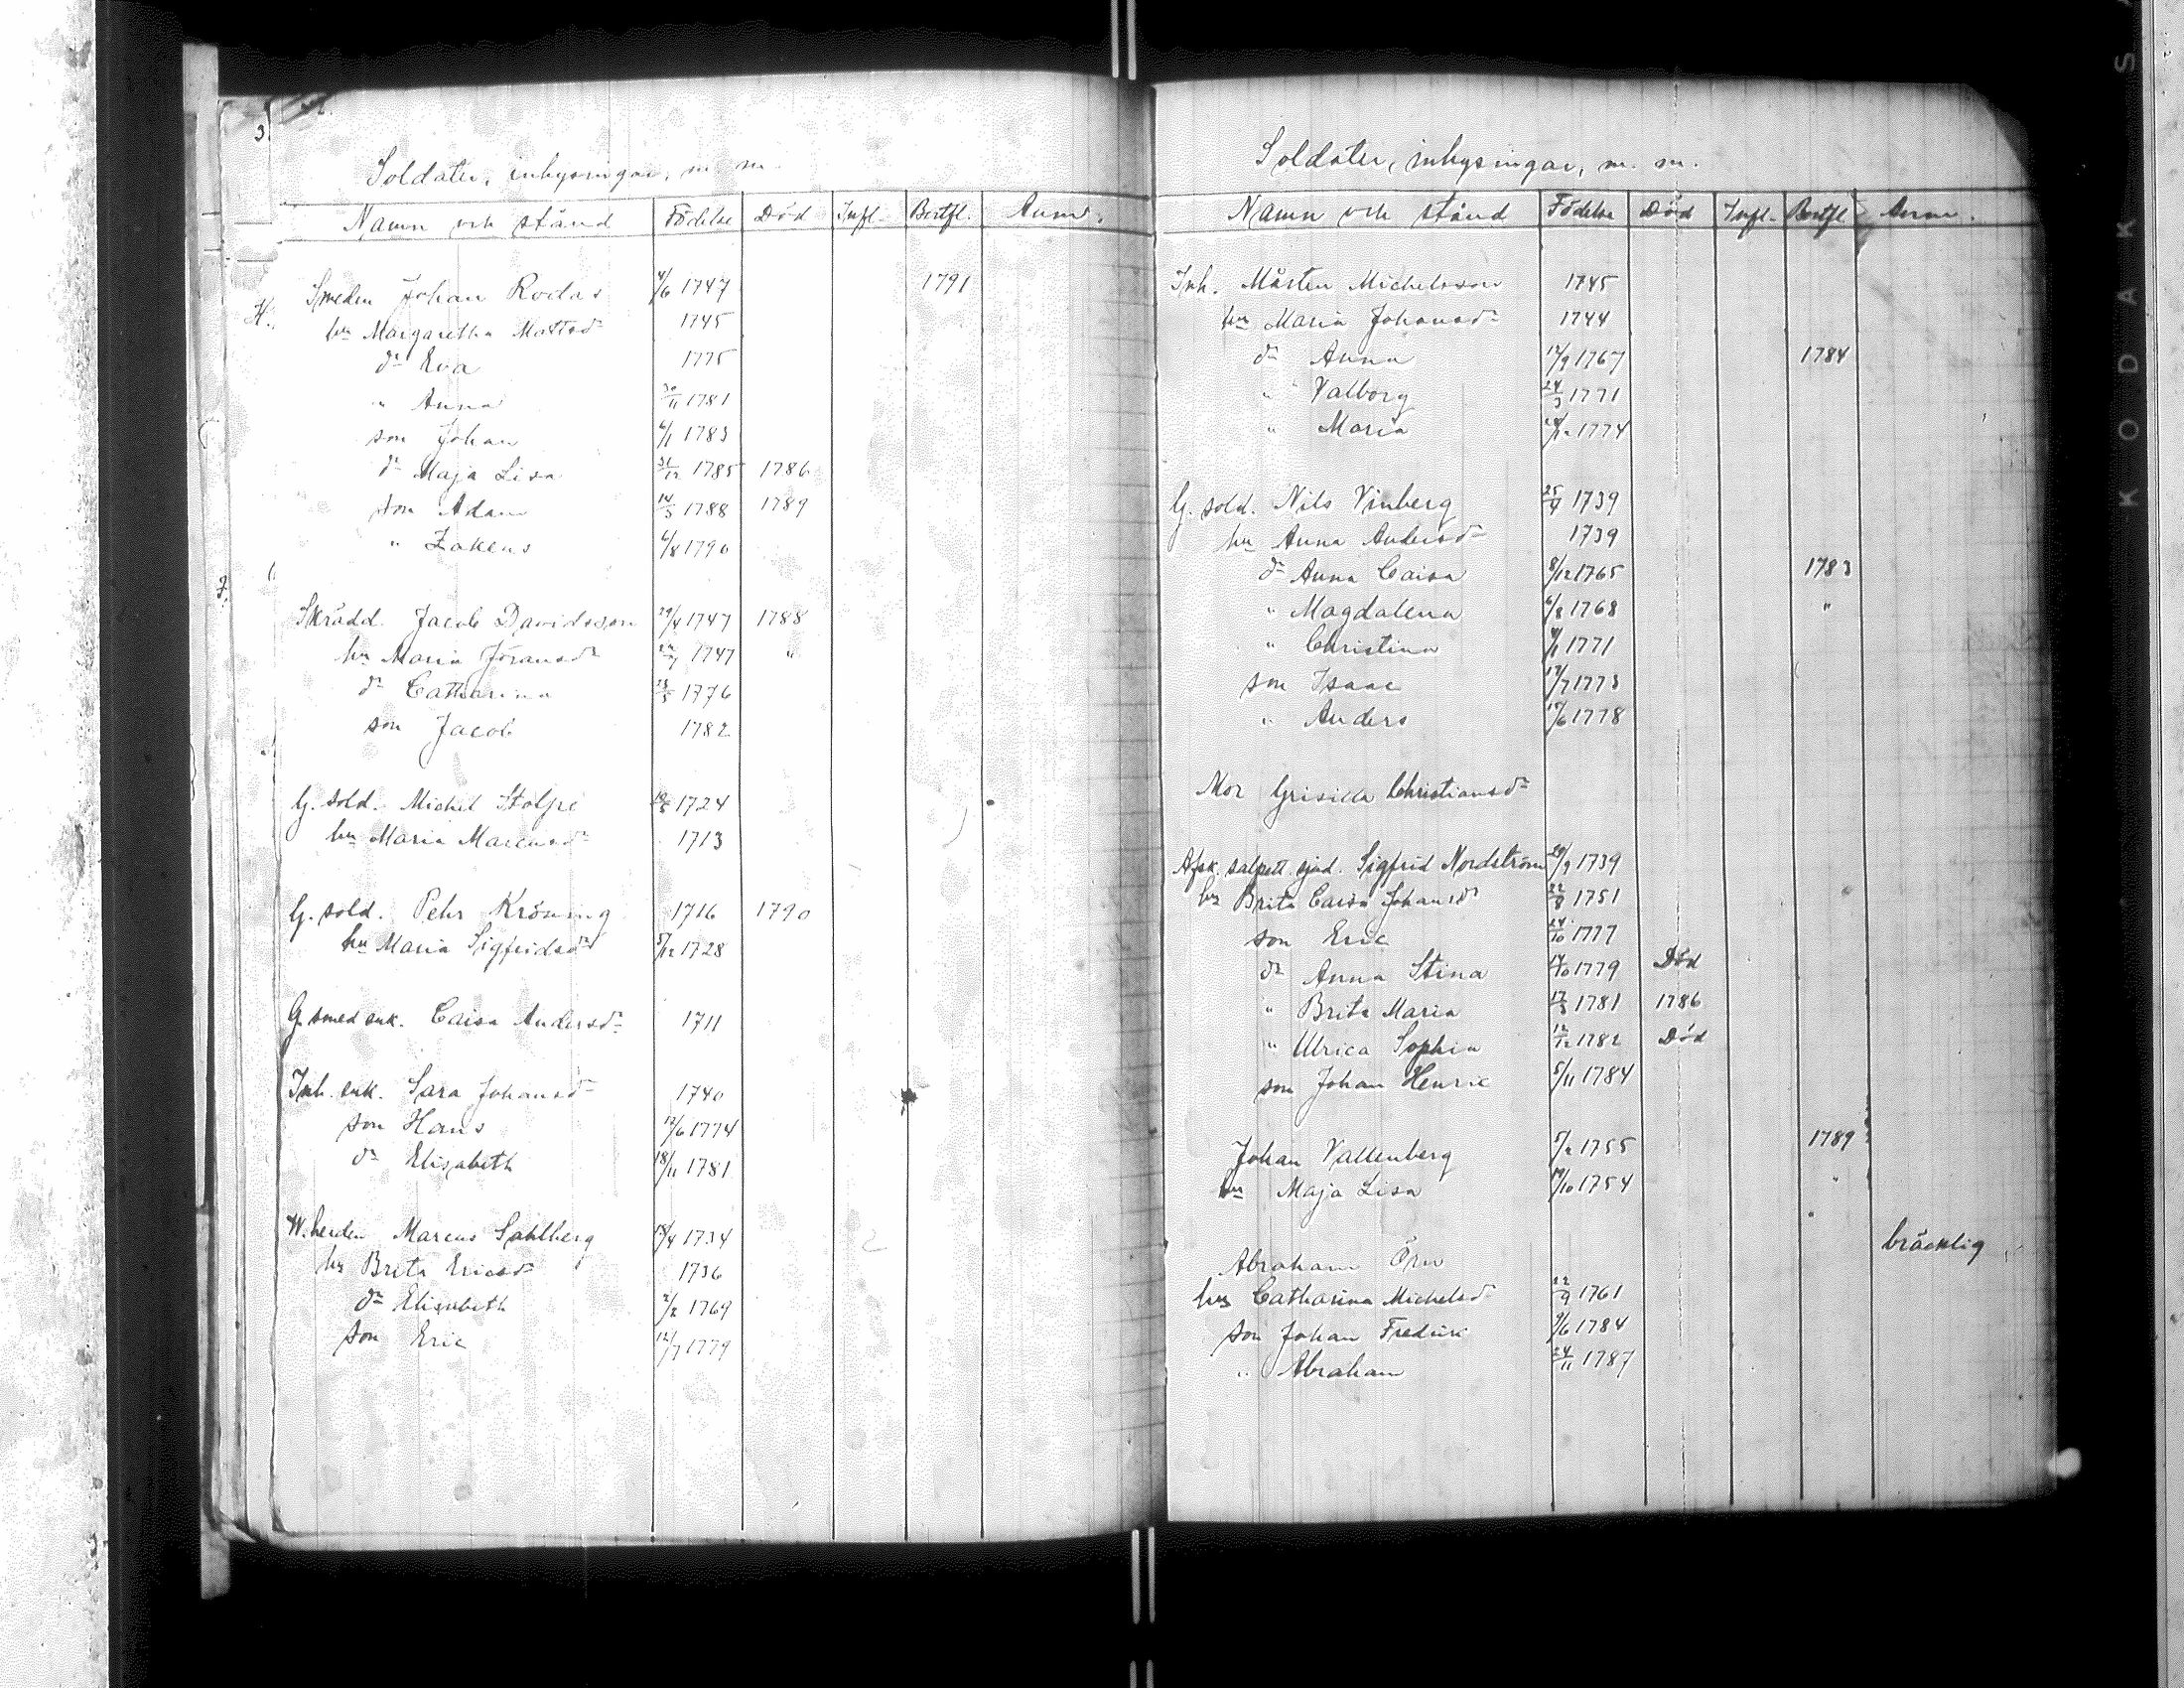 3
Soldater, inhysningar, m. m.
Namn och stånd Födelse Död Infl. Bortfl. Anm.
Smeden Johan Rodas 4/6 1747 1791
H.
hu Margaretha Mattsdr 1745
dr Eva 1775
" Anna 30/11 1781
son Johan 6/1 1783
dr Maja Lisa 31/12 1785 1786
son Adam 14/3 1788 1789
" Zakeus 6/8 1790
Skrädd. Jacob Davidsson 29/4 1747 1788
hu Maria Jöransdr 1747 "
dr Catharina 1776
son Jacob 1782
G. sold. Michel Stolpe 1724
hu Maria Marcusdr 1713
G. sold. Pehr Kröning 1716 1790
hu Maria Sigfridsdr 5/12 1728
G. smed enk. Caisa Andersdr 1711
Inh. enk. Sara Johansdr 1740
son Hans 12/6 1774
dr Elisabeth 18/11 1781
W.herden Marcus Sahlberg 18/4 1734
hu Brita Ericsdr 1736
dr Elisabeth 2/2 1769
son Eric 12/7 1779
Soldater, inhysningar, m. m.
Namn och stånd Födelse Död Infl. Bortfl. Anm.
Inh. Mårten Michelsson 1745
hu Maria Johansdr 1744
dr Anna 12/9 1767 1784
" Valborg 24/3 1771
" Maria 1774
G. sold. Nils Vinberg 1739
hu Anna Andersdr 1739
dr Anna Caisa 8/12 1765 1783
" Magdalena 6/8 1768 "
" Christina 1771
son Isaac 17/7 1773
" Anders 15/6 1778
Mor Grisilla Christiansdr
Afsk. salpett. sjud. Sigfrid Nordström 29/9 1739
hu Brita Caisa Johansdr 22/8 1751
son Eric 24/10 1777
dr Anna Stina 14/10 1779 Död
" Brita Maria 17/3 1781 1786
" Ulrica Sophia 12/12 1782 Död
son Johan Henric 5/11 1784
Johan Vallenberg 5/2 1755 1789
hu Maja Lisa 19/10 1754 "
Abraham Örn bräcklig
hu Catharina Michelsdr 22/9 1761
son Johan Fredric 9/6 1784
" Abraham 24/11 1787
KODAK S